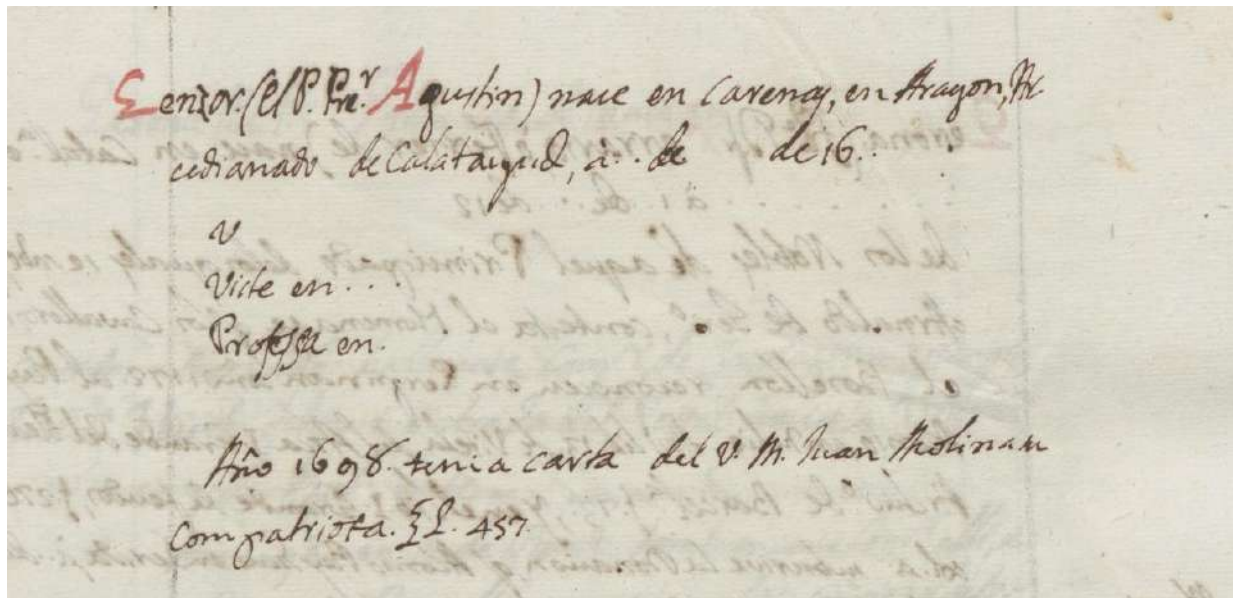 Cenzor. (el P. Fr.r Agustin) nace en Carenas, en Aragon, Ar
cedianado de Calatayud, à .. de de 16..
V
Viste en ...
Professa en.
Año 1698. tenia carta del V. M. Juan Molina su
compatriota. 457.